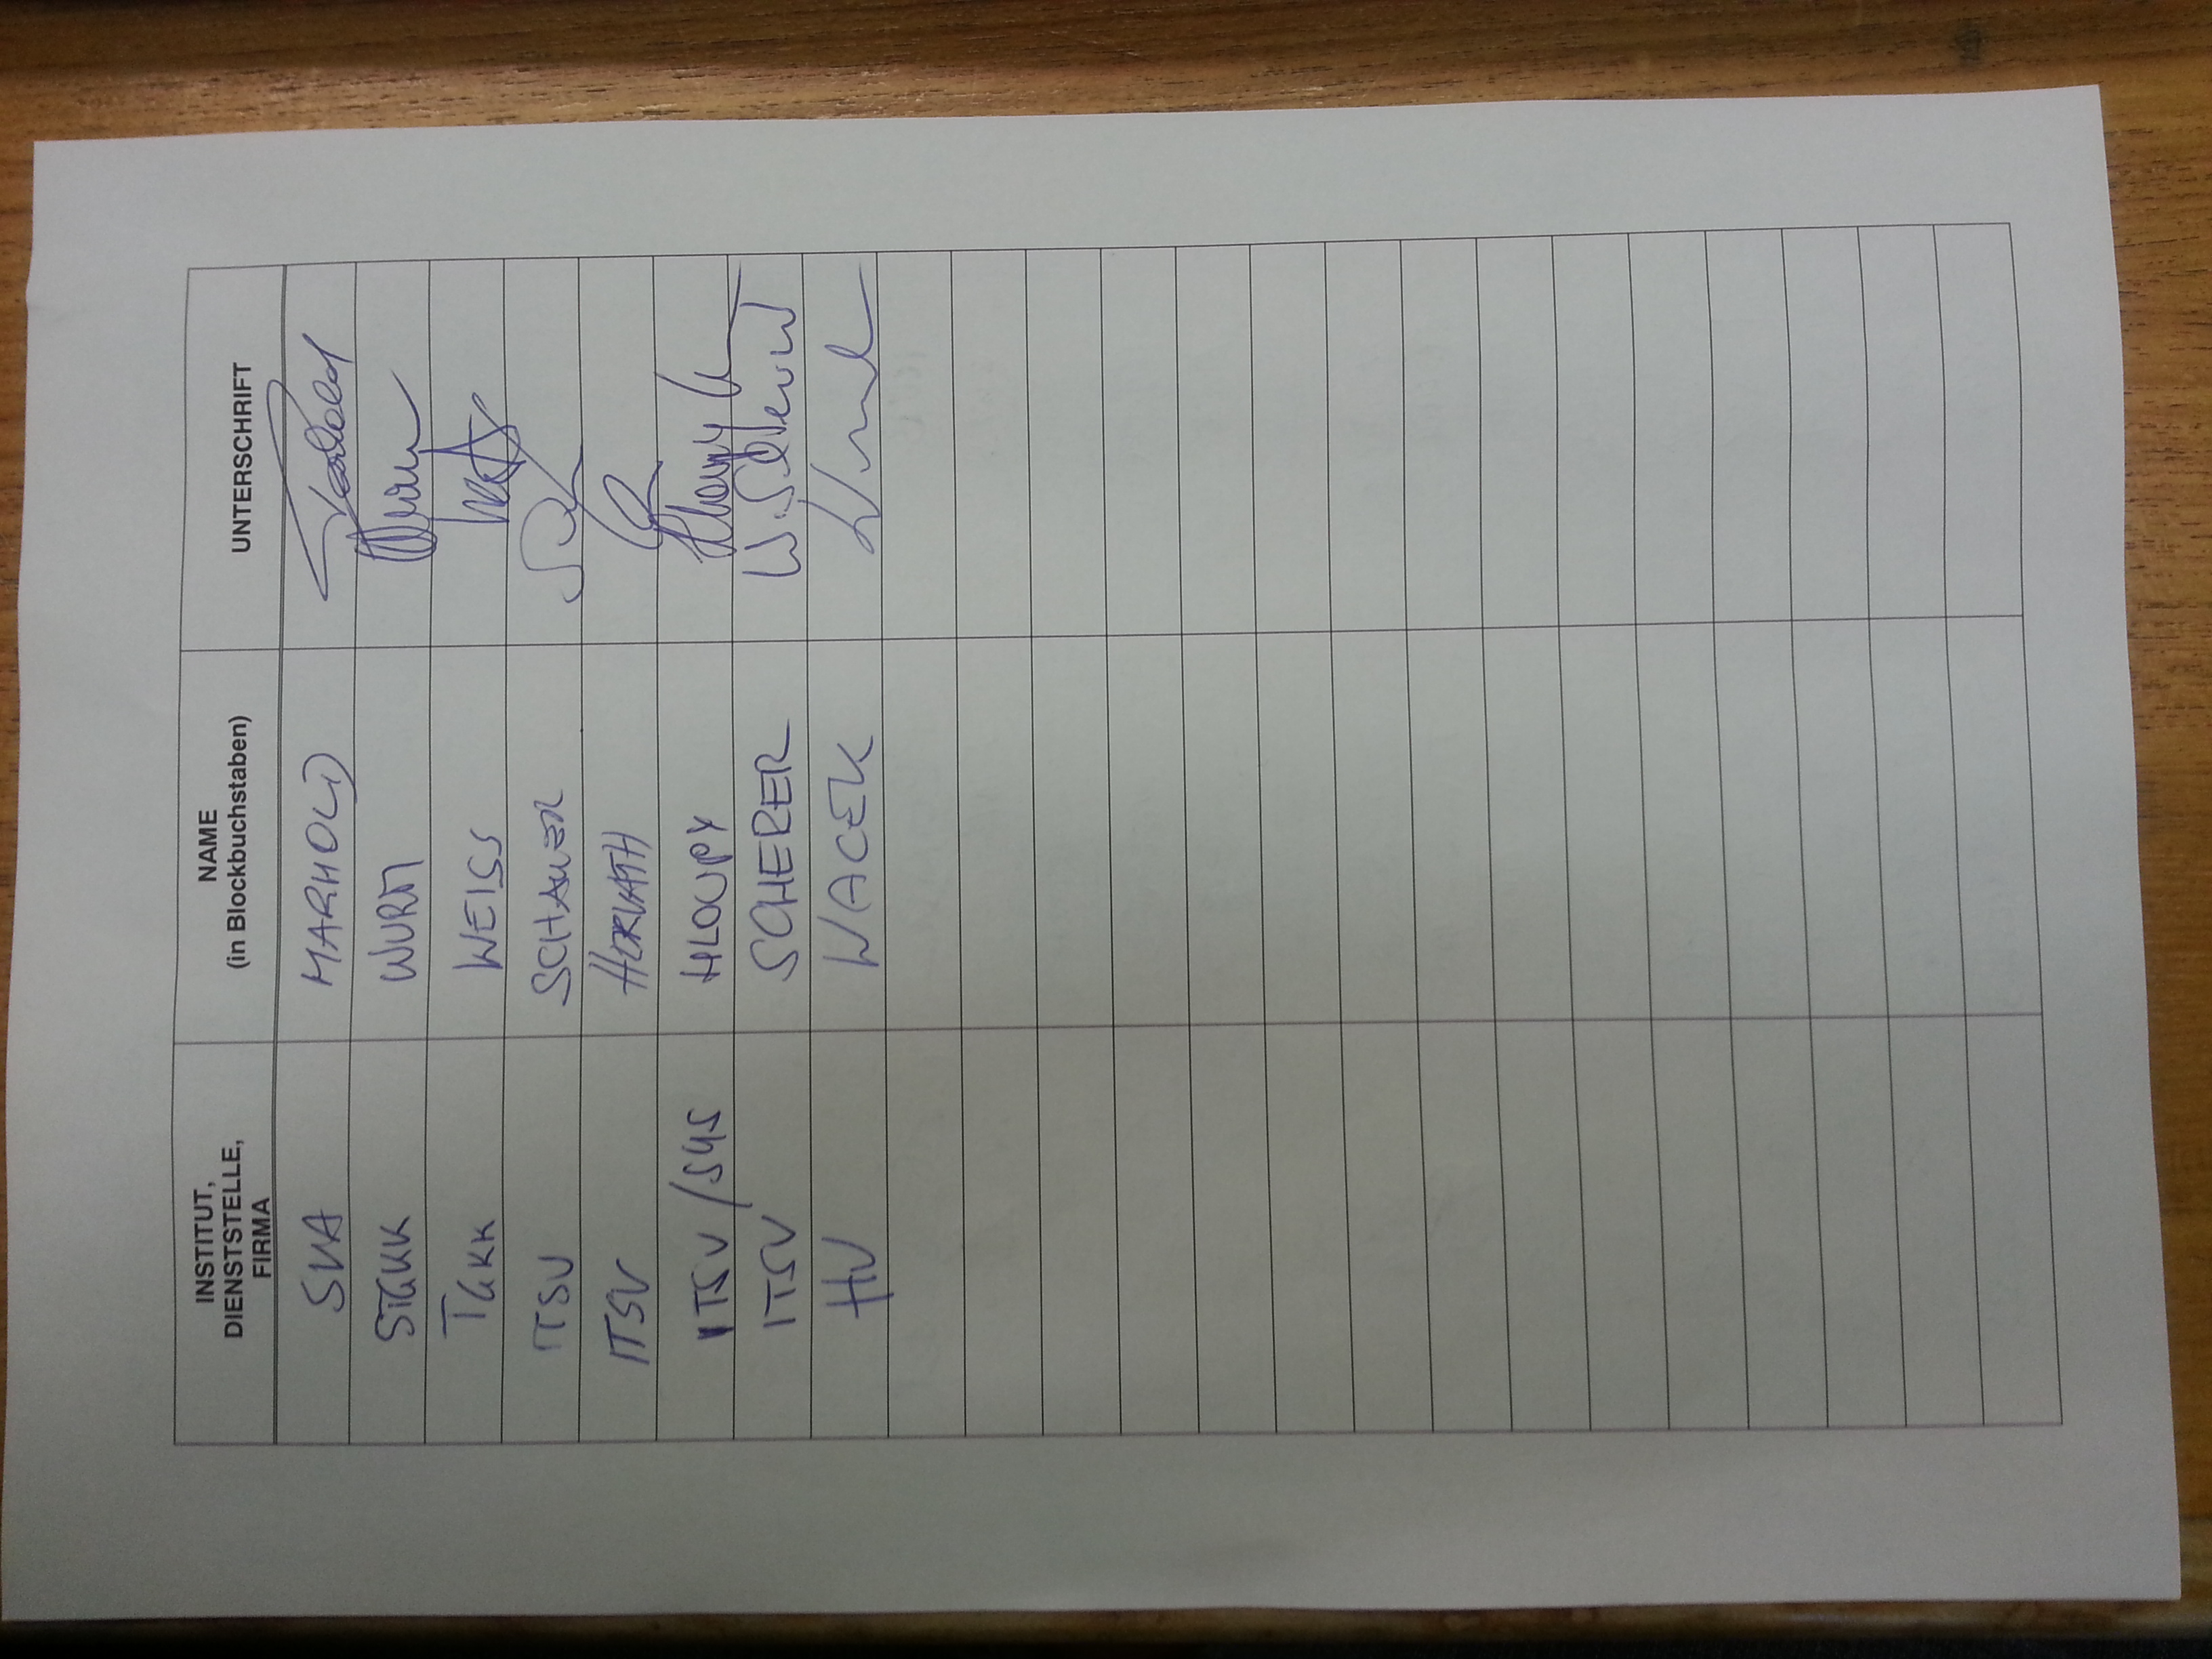 INSTITUT,
DIENSTSTELLE,
FIRMA
NAME
(in Blockbuchstaben)
UNTERSCHRIFT
SVA MARHOLD
STGKK WURM
TGKK WEISS
ITSV SCHAUER
ITSV HORVATH
ITSV/SYS HLOUPY
ITSV SCHERER W. Scherer
HV WACEK